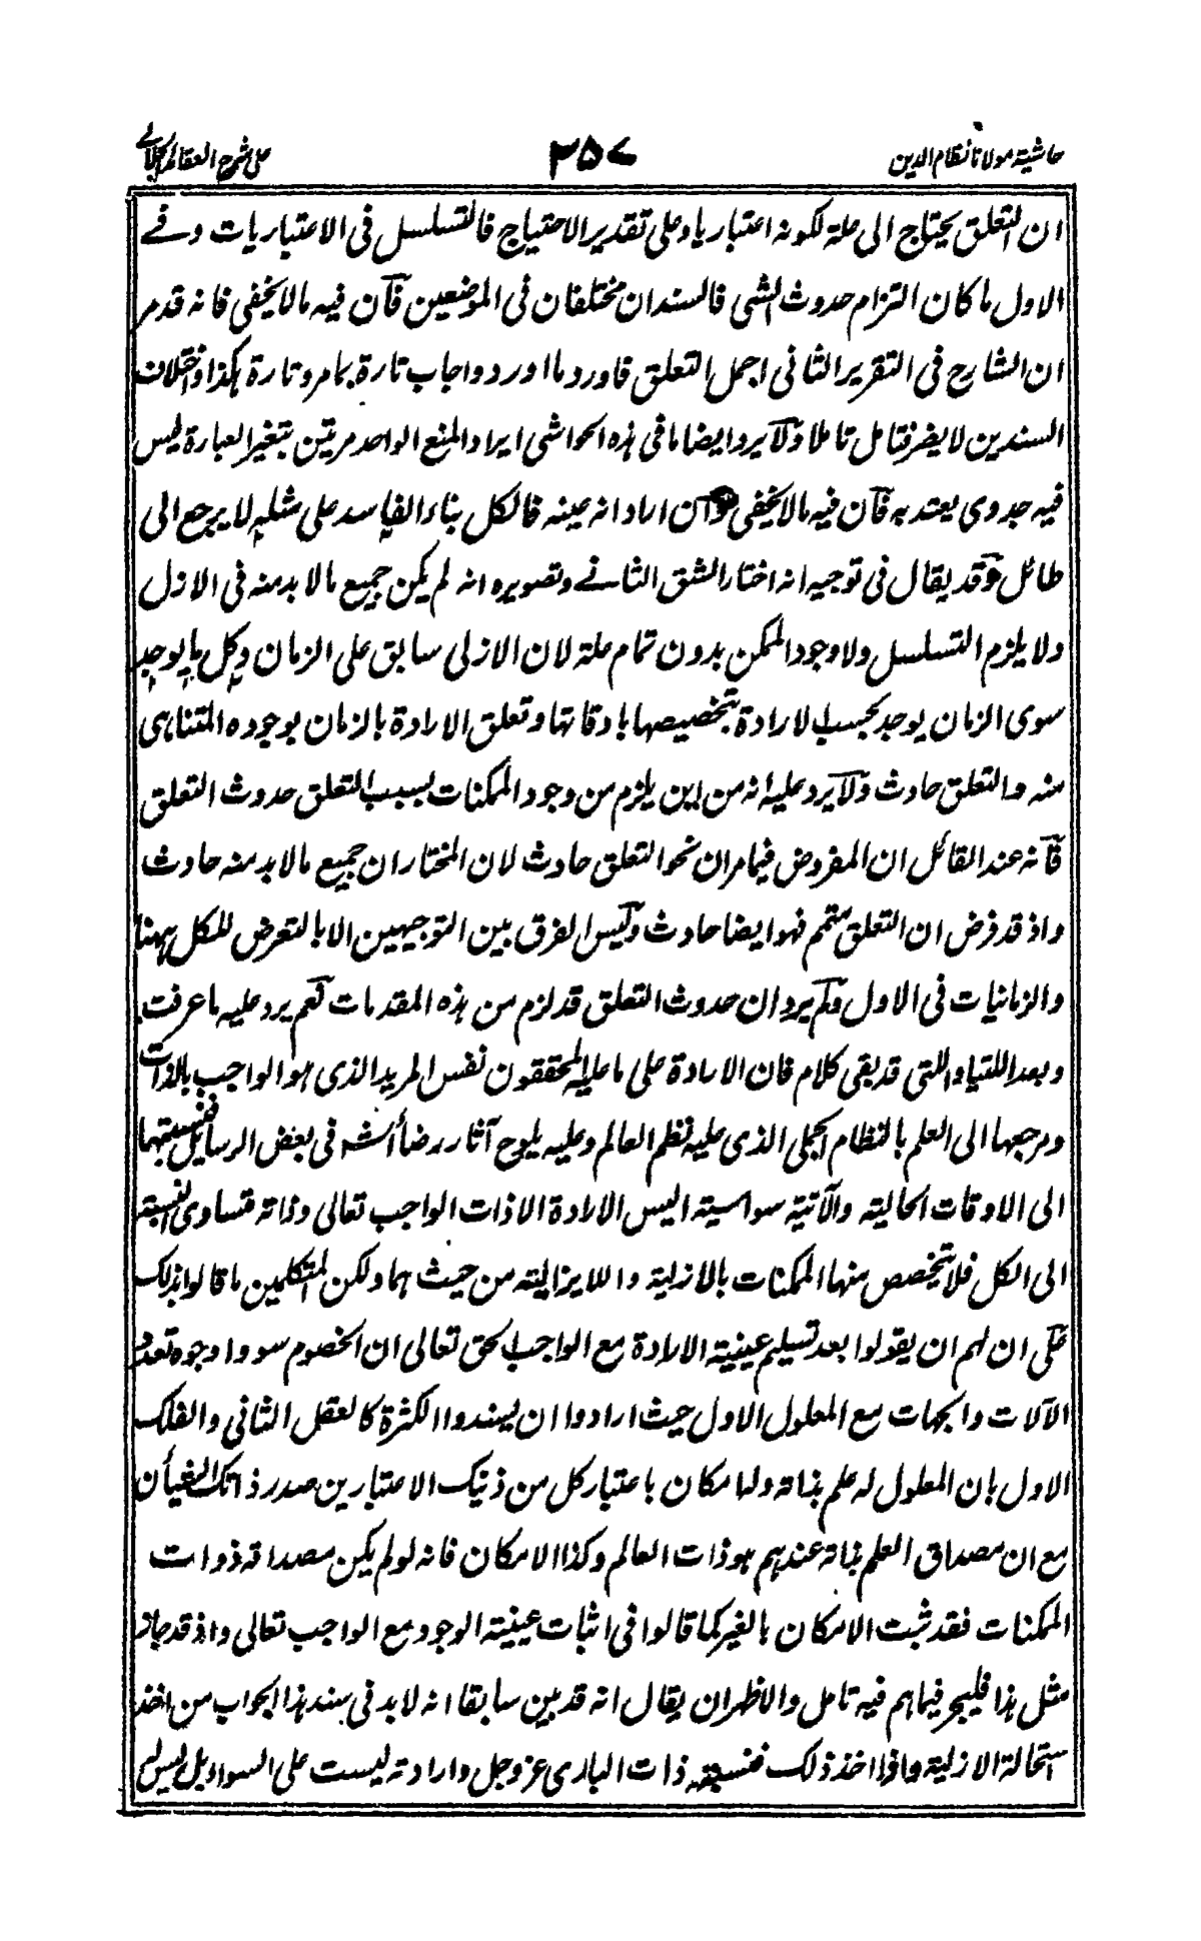 حاشية مولانا نظام الدين
٣٥٧
على شرح العقائد الجلالي
ان التعلق يحتاج الى علة لكونه اعتباريا وعلى تقدير الاحتياج فالتسلسل فى الاعتباريات وفي
الاول ما كان التزام حدوث الشى فالسندان مختلفان فى الموضعين فآن فيه مالا يخفى فانه قد مر
ان الشارح فى التقرير الثانى اجمل التعلق فاورد ما اورد واجاب تارة بما مر وتارة بهكذا واختلاف
السندين لا يضر فتامل تاملا ولا يرد ايضا ما فى هذه الحواشى ايراد المنع الواحد مرتين بتغير العبارة ليس
فيه جدوى يعتد به فآن فيه مالا يخفى وآن اراد انه عينه فالكل بناء الفاسد على مثله لا يرجع الى
طائل وقد يقال فى توجيه انه اختار الشق الثانے وتصويره انه لم يكن جميع مالا بد منه فى الازل
ولا يلزم التسلسل ولا وجود الممكن بدون تمام علة لان الازلى سابق على الزمان وكل ما يوجد
سوى الزمان يوجد بحسب الارادة بتخصيصها باوقاتها وتعلق الارادة بالزمان بوجوده المتناهى
منه والتعلق حادث ولا يرد عليه انه من اين يلزم من وجود الممكنات بسبب التعلق حدوث التعلق
فآنه عند القائل ان المفروض فيما مر ان نحو التعلق حادث لان المختار ان جميع مالا بد منه حادث
واذ قد فرض ان التعلق متمم فهو ايضا حادث وليس الفرق بين التوجيهين الا بالتعرض للكل ههنا
والزمانيات فى الاول ولم يرد ان حدوث التعلق قد لزم من هذه المقدمات نعم يرد عليه ما عرفت
وبعد اللتيا والتى قد بقى كلام فان الارادة على ما عليه المحققون نفس المريد الذى هو الواجب بالذات
ومرجعها الى العلم بالنظام الجملى الذى عليه نظم العالم وعليه يلوح آثار رضا فى بعض الرسايل فنسبتها
الى الاوقات الحالية والآتية سواسية اليس الارادة الا ذات الواجب تعالى وذاته متساوى النسبة
الى الكل فلا يتخصص منها الممكنات بالازلية واللايزالية من حيث هما ولكن المتكلمين ما قالوا بذلك
على ان لهم ان يقولوا بعد تسليم عينية الارادة مع الواجب الحق تعالى ان الخصوم سووا وجوه تعدد
الآلات والجهات مع المعلول الاول حيث ارادوا ان يسندوا الكثرة كالعقل الثانى والفلك
الاول بان المعلول له علم بذاته ولها مكان باعتبار كل من ذينك الاعتبارين صدر ذانك الشيأن
مع ان مصداق العلم بذاته عندهم هو ذات العالم وكذا الامكان فانه لو لم يكن مصداقه ذوات
الممكنات فقد ثبت الامكان بالغير كما قالوا فى اثبات عينية الوجود مع الواجب تعالى واذ قد جاز
مثل هذا فليجر فيما هم فيه تامل والاظهر ان يقال انه قد بين سابقا انه لا بد فى سند هذا الجواب من اخذ
استحالة الازلية واذا اخذ ذلك فنسبة ذات البارى عز وجل وارادته ليست على السواء بل ليس